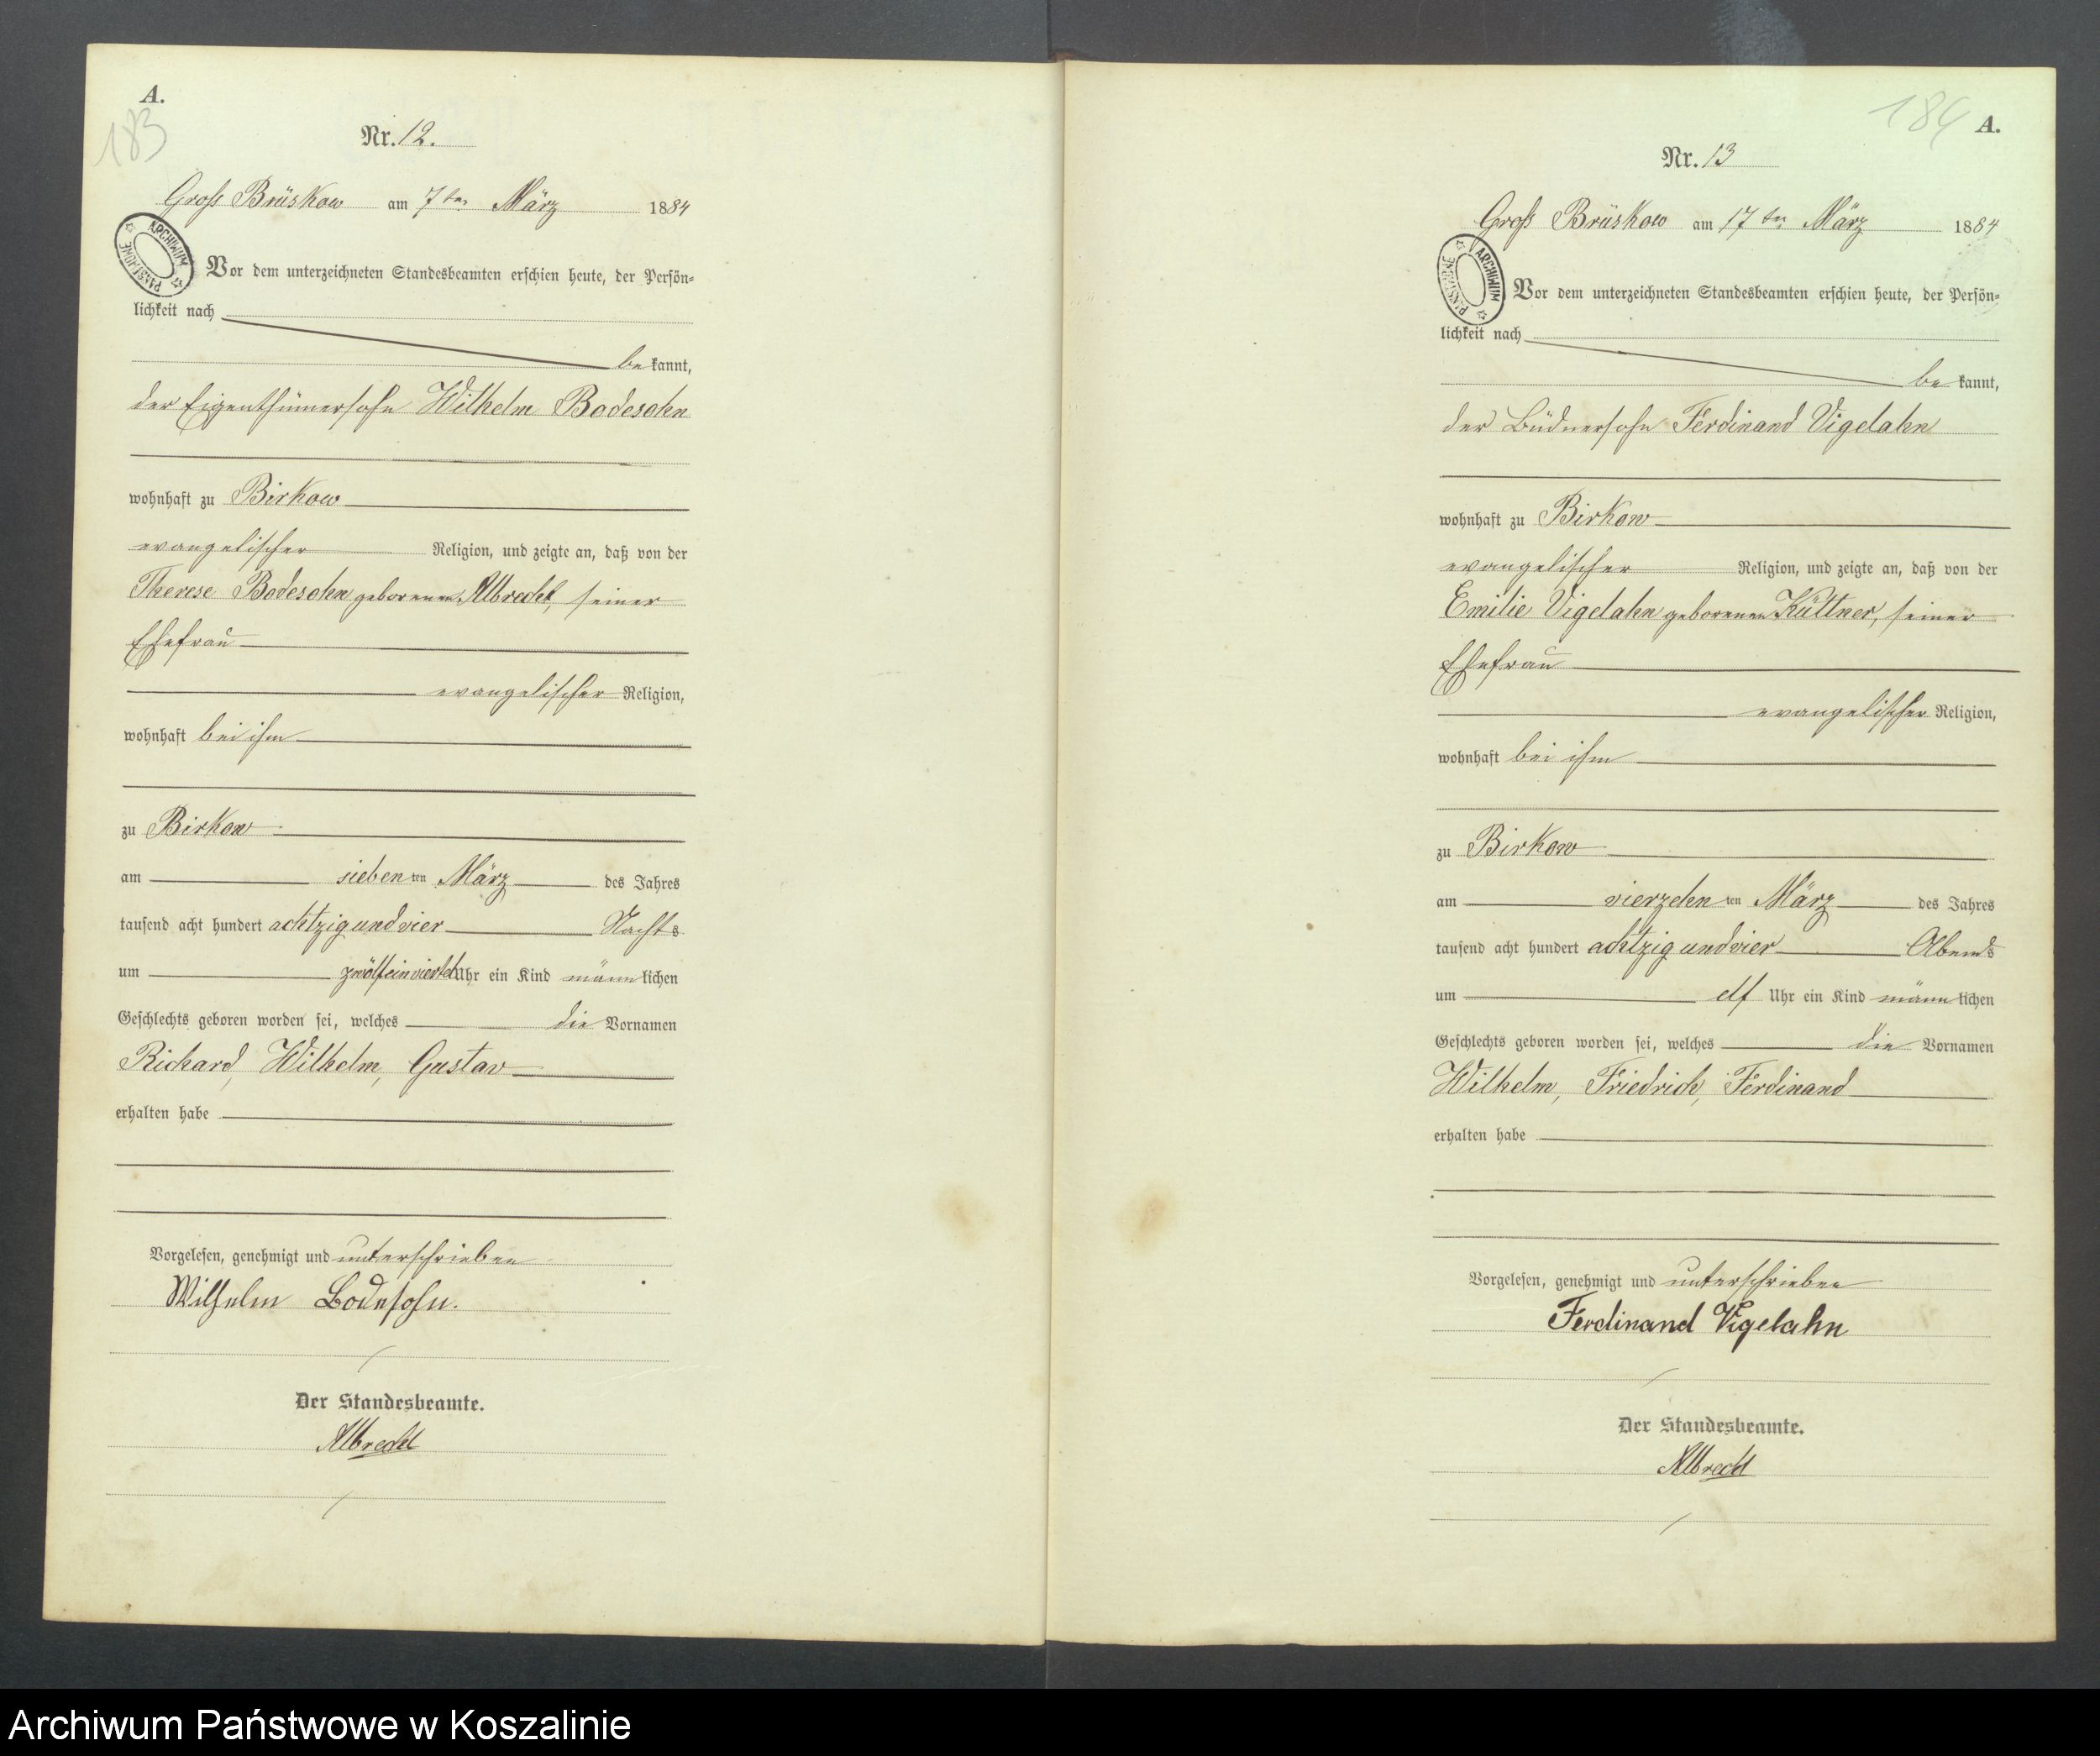 A.
183
Nr. 12.
Gross Brüskow am 7ten März 1884
ARCHIWUM PAŃSTWOWE
Vor dem unterzeichneten Standesbeamten erschien heute, der Persön=
lichkeit nach
be kannt,
der Eigenthümersohn Wilhelm Bodesohn
wohnhaft zu Birkow
evangelischer Religion, und zeigte an, daß von der
Therese Bodesohn geborenen Albrecht, seiner
Ehefrau
evangelischer Religion,
wohnhaft bei ihm
zu Birkow
am sieben ten März des Jahres
tausend acht hundert achtzig und vier Nachts
um zwölf ein viertel Uhr ein Kind männ lichen
Geschlechts geboren worden sei, welches die Vornamen
Richard, Wilhelm, Gustav
erhalten habe
Vorgelesen, genehmigt und unterschrieben
Wilhelm Bodesohn.
Der Standesbeamte.
Albrecht
184
A.
Nr. 13
Gross Brüskow am 17ten März 1884
ARCHIWUM PAŃSTWOWE
Vor dem unterzeichneten Standesbeamten erschien heute, der Persön=
lichkeit nach
be kannt,
der Büdnersohn Ferdinand Vigelahn
wohnhaft zu Birkow
evangelischer Religion, und zeigte an, daß von der
Emilie Vigelahn geborenen Küttner, seiner
Ehefrau
evangelischer Religion,
wohnhaft bei ihm
zu Birkow
am vierzehn ten März des Jahres
tausend acht hundert achtzig und vier Abends
um elf Uhr ein Kind männ lichen
Geschlechts geboren worden sei, welches die Vornamen
Wilhelm, Friedrich, Ferdinand
erhalten habe
Vorgelesen, genehmigt und unterschrieben
Ferdinand Vigelahn
Der Standesbeamte.
Albrecht
Archiwum Państwowe w Koszalinie